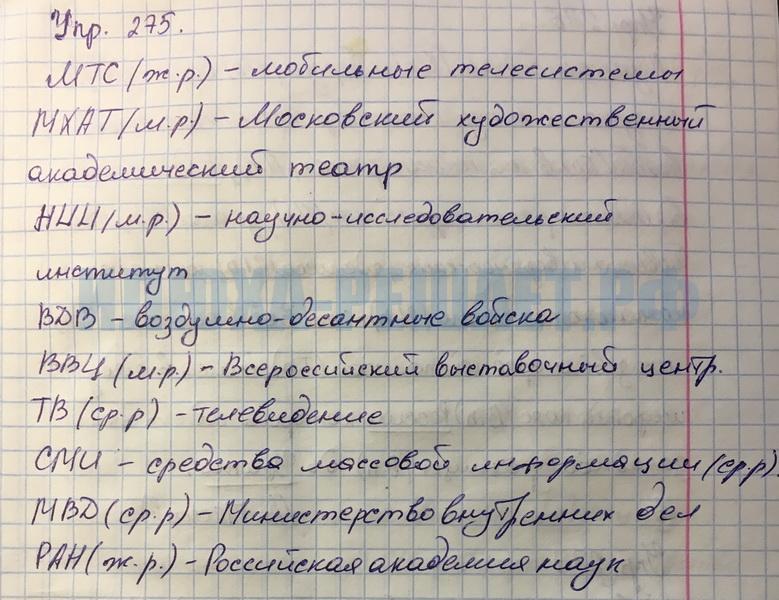 Упр. 275.
МТС (ж.р.) – мобильные телесистемы
МХАТ (м.р.) – Московский художественный
академический театр
НИИ (м.р.) – научно-исследовательский
институт
ВДВ – воздушно-десантные войска
ВВЦ (м.р.) – Всероссийский выставочный центр.
ТВ (ср.р) – телевидение
СМИ – средства массовой информации (ср.р).
МВД (ср.р) – Министерство внутренних дел
РАН (ж.р.) – Российская академия наук